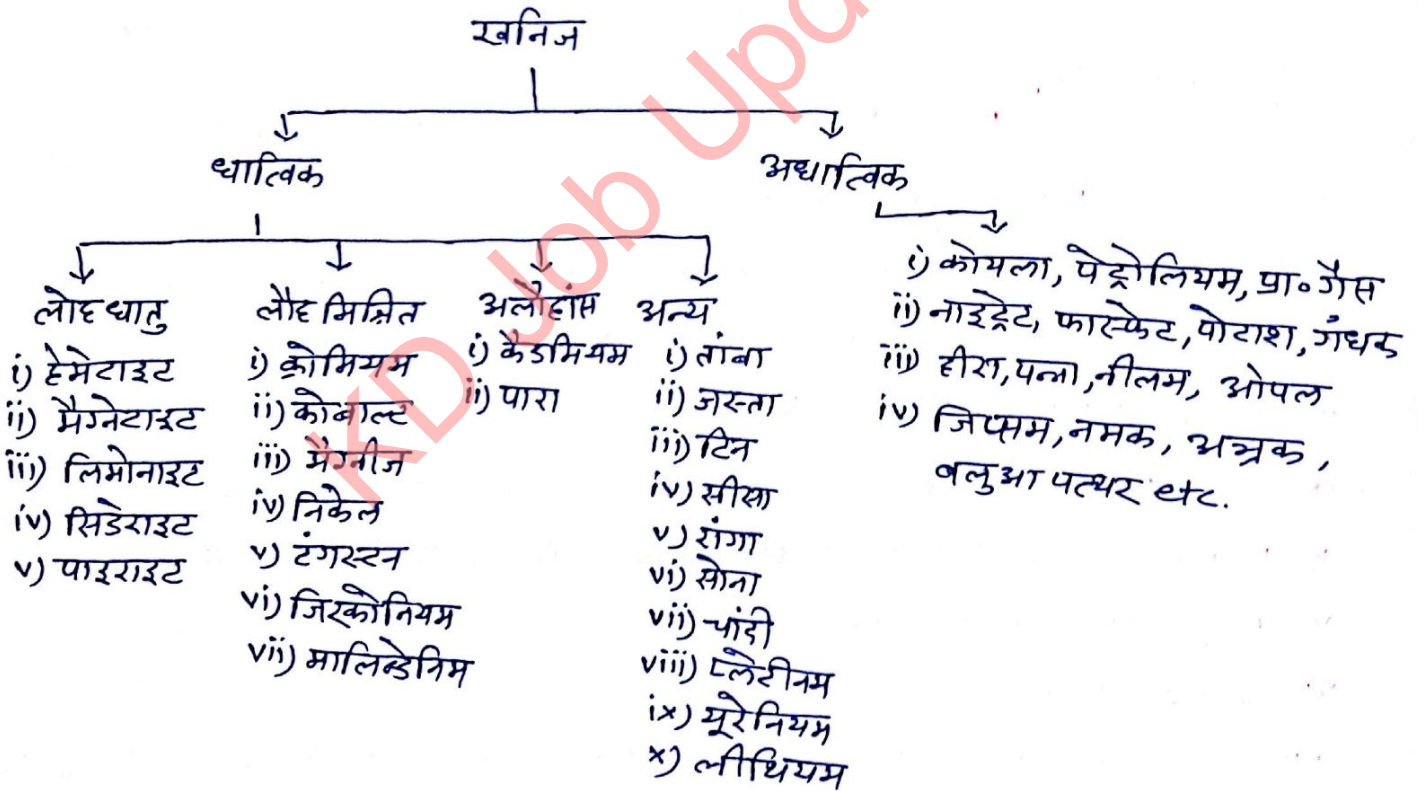 खनिज
धात्विक
अधात्विक
लोह धातु
i) हेमेटाइट
ii) मैग्नेटाइट
iii) लिमोनाइट
iv) सिडेराइट
v) पाइराइट
लौह मिश्रित
i) क्रोमियम
ii) कोबाल्ट
iii) मैग्नीज
iv) निकेल
v) टंगस्टन
vi) जिरकोनियम
vii) मालिब्डेनिम
अलौहांस
i) कैडमियम
ii) पारा
अन्य
i) तांबा
ii) जस्ता
iii) टिन
iv) सीसा
v) रांगा
vi) सोना
vii) चांदी
viii) प्लेटीनम
ix) यूरेनियम
x) लीथियम
i) कोयला, पेट्रोलियम, प्रा० गैस
ii) नाइट्रेट, फास्फेट, पोटाश, गंधक
iii) हीरा, पन्ना, नीलम, ओपल
iv) जिप्सम, नमक, अभ्रक,
बलुआ पत्थर etc.
KD Job Upda